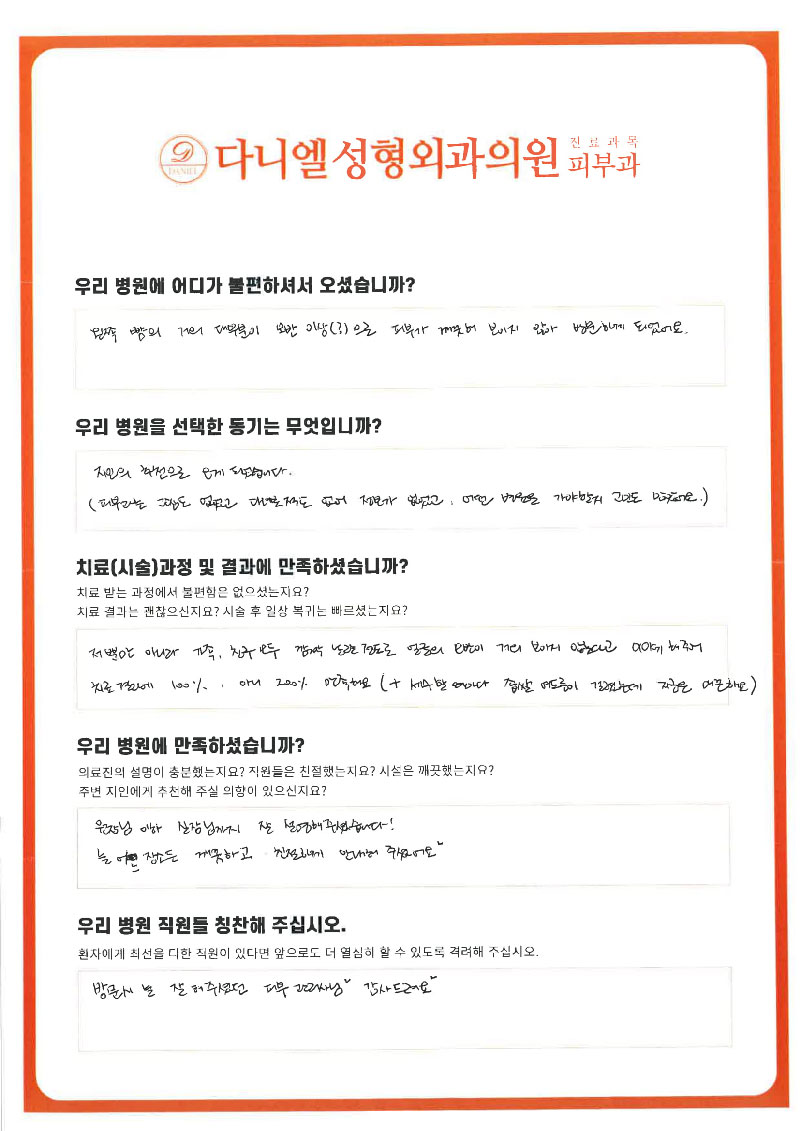 DANIEL
다니엘성형외과의원 진료과목 피부과
우리 병원에 어디가 불편하셔서 오셨습니까?
왼쪽 뺨의 거의 대부분이 모반 이상(?)으로 피부가 깨끗해 보이지 않아 방문하게 되었어요.
우리 병원을 선택한 동기는 무엇입니까?
지인의 추천으로 오게 되었습니다.
(피부과는 관심도 없었고 다녀본적도 없어 정보가 없었고, 어떤 병원을 가야할지 고민도 많았어요.)
치료(시술)과정 및 결과에 만족하셨습니까?
치료 받는 과정에서 불편함은 없으셨는지요?
치료 결과는 괜찮으신지요? 시술 후 일상 복귀는 빠르셨는지요?
저뿐만 아니라 가족, 친구 모두 깜짝 놀랄 정도로 얼굴의 모반이 거의 보이지 않는다고 이야기 해주어
치료 결과에 100%, 아니 200% 만족해요 (+ 세수할 때마다 좁쌀 여드름이 걸렸는데 지금은 매끈해요)
우리 병원에 만족하셨습니까?
의료진의 설명이 충분했는지요? 직원들은 친절했는지요? 시설은 깨끗했는지요?
주변 지인에게 추천해 주실 의향이 있으신지요?
원장님 이하 실장님까지 잘 설명해주셨습니다!
늘 어떤 장소든 깨끗하고 친절하게 안내해 주셨어요~
우리 병원 직원들 칭찬해 주십시오.
환자에게 최선을 다한 직원이 있다면 앞으로도 더 열심히 할 수 있도록 격려해 주십시오.
방문시 늘 잘 해주셨던 피부 관리사님~ 감사드려요~